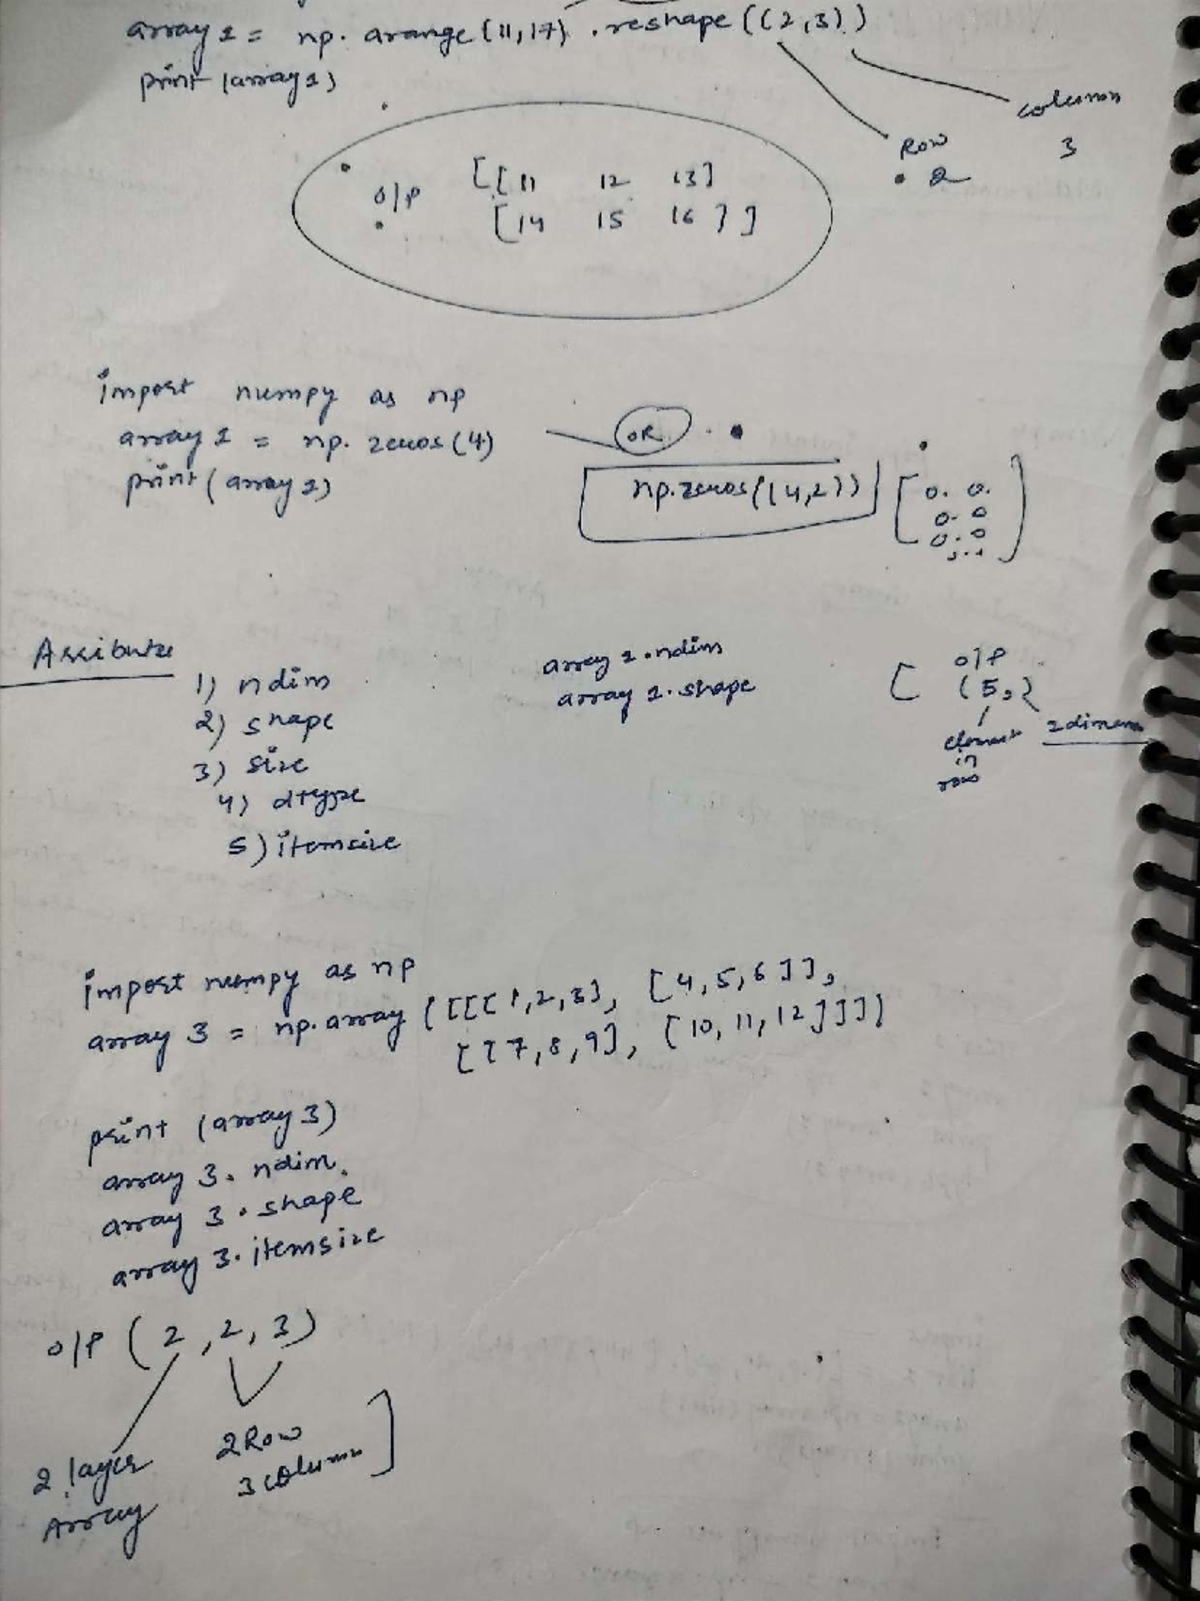 array1 = np.arange(11,17).reshape((2,3))
print(array1)
column
3
Row
2
o/p [[11 12 13]
[14 15 16]]
import numpy as np
array1 = np.zeros(4)
print(array1)
OR
np.zeros((4,2))
[0. 0.
0. 0
0. 0
]
Attribute
1) ndim
2) shape
3) size
4) dtype
5) itemsize
array1.ndim
array1.shape
[ o/p
(5,)
element
in
row
1 dimen
import numpy as np
array3 = np.array([[[1,2,3], [4,5,6]],
[[7,8,9], [10,11,12]]])
print(array3)
array3.ndim.
array3.shape
array3.itemsize
o/p (2,2,3)
2 layer
Array
2 Row
3 column]